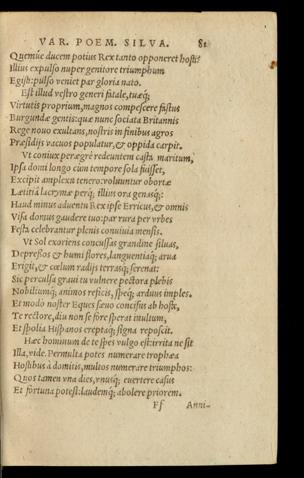 VAR. POEM. SILVA. 81
Quemúe ducem potius Rex tanto opponeret hosti?
Illius expulso nuper genitore triumphum
Egist: pulso veniet par gloria nato.
Est illud vestro generi fatale, tuæq́;
Virtutis proprium, magnos compescere fastus
Burgundæ gentis: quæ nunc sociata Britannis
Rege nouo exultans, nostris in finibus agros
Præsidijs vacuos populatur, & oppida carpit.
Vt coniux peregrè redeuntem casta maritum,
Ipsa domi longo cùm tempore sola fuisset,
Excipit amplexu tenero: voluuntur obortæ
Lætitiâ lacrymæ perq́; illius ora genasq́;:
Haud minus aduentu Rex ipse Erricus, & omnis
Visa domus gaudere tuo: par rura per vrbes
Festa celebrantur plenis conuiuia mensis.
Vt Sol exoriens concussas grandine siluas,
Depressos & humi flores, languentiaq́; arua
Erigit, & cœlum radijs terrasq́; serenat:
Sic perculsa graui tu vulnere pectora plebis
Nobiliumq́; animos reficis, speq́; arduus imples.
Et modò noster Eques sæuo confisus ab hoste,
Te rectore, diu non se fore sperat inultum,
Et spolia Hispanos ereptaq́; signa reposcit.
Hæc hominum de te spes vulgo est: irrita ne sit
Illa, vide. Permulta potes numerare trophæa
Hostibus à domitis, multos numerare triumphos:
Quos tamen vna dies, vnusq́; euertere casus
Et fortuna potest: laudemq́; abolere priorem.
Ff Anni-